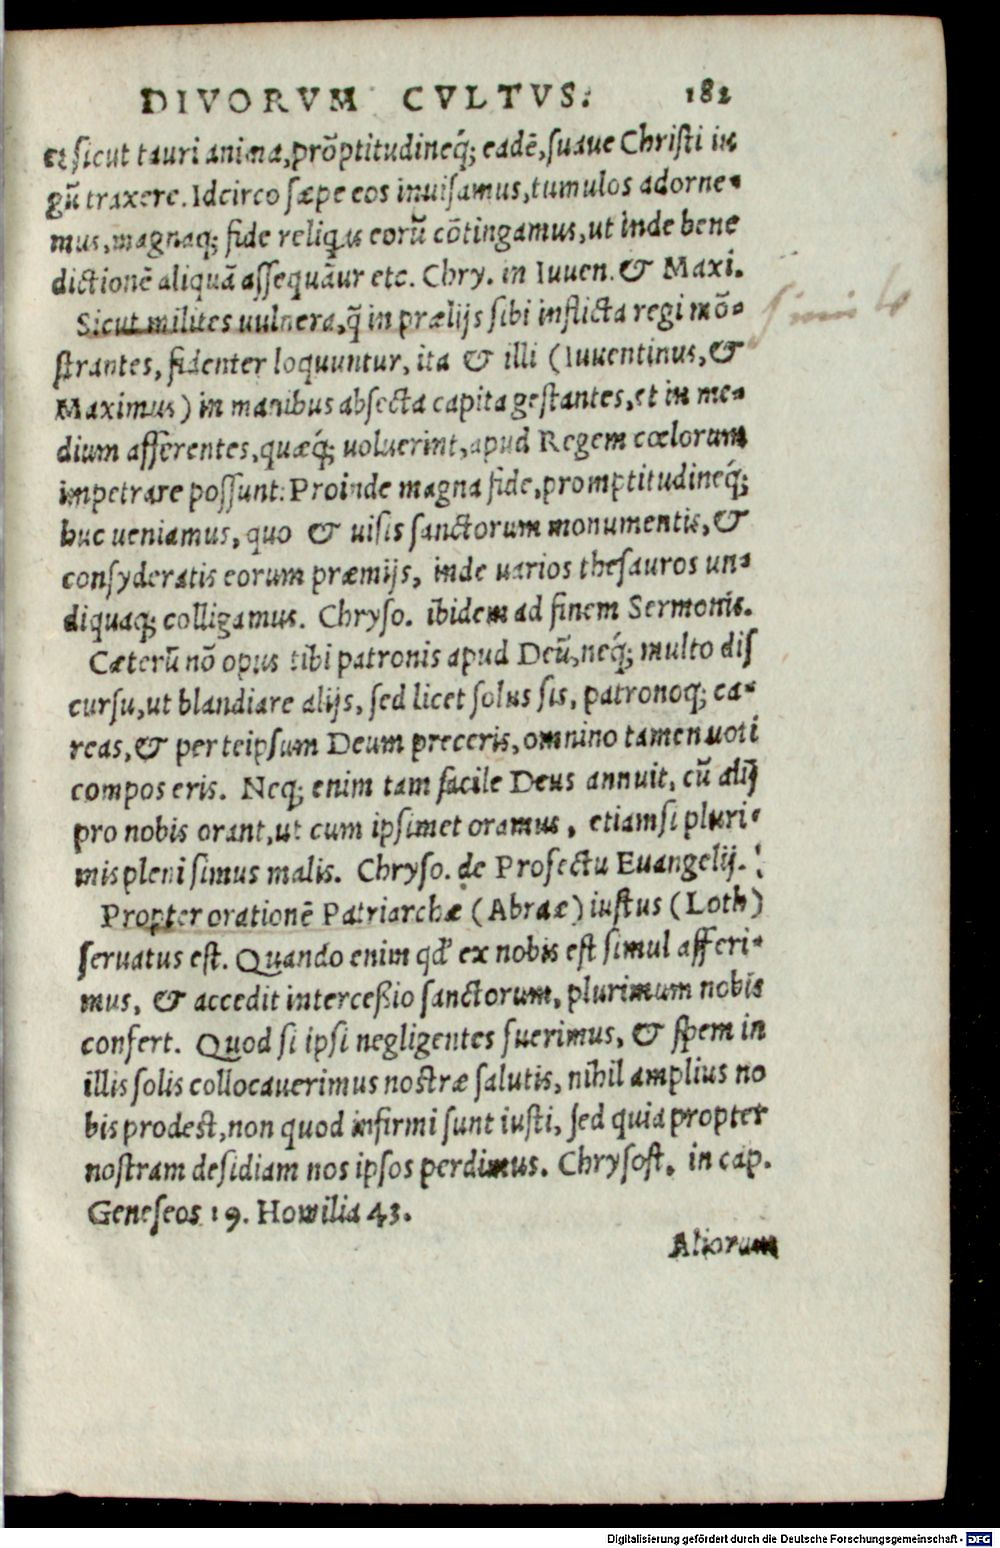 DIVORVM CVLTVS. 182
et ſicut tauri anima, prõptitudineq́; eadẽ, ſuaue Chriſti iu
gũ traxere. Idcirco ſæpe eos inuiſamus, tumulos adorne-
mus, magnaq; fide reliq̃as eorũ cõtingamus, ut inde bene
dictionẽ aliquã aſſequãur etc. Chry. in Iuuen. & Maxi.
Sicut milites uulnera, q̃ in prælijs ſibi inflicta regi mõ-
ſtrantes, fidenter loquuntur, ita & illi (Iuuentinus, &
Maximus) in manibus abſecta capita geſtantes, et in me-
dium afferentes, quæq́; uoluerint, apud Regem cœlorum
impetrare poſſunt. Proinde magna fide, promptitudineq́;
huc ueniamus, quo & uiſis ſanctorum monumentis, &
conſyderatis eorum præmijs, inde uarios theſauros un-
diquaq; colligamus. Chryſo. ibidem ad finem Sermonis.
Cæterũ nõ opus tibi patronis apud Deũ, neq́; multo diſ
curſu, ut blandiare alijs, ſed licet ſolus ſis, patronoq; ca-
reas, & per teipſum Deum preceris, omnino tamen uoti
compos eris. Neq; enim tam facile Deus annuit, cũ alij
pro nobis orant, ut cum ipſimet oramus, etiamſi pluri-
mis pleni ſimus malis. Chryſo. de Profectu Euangelij.
Propter orationẽ Patriarchæ (Abraæ) iuſtus (Loth)
ſeruatus eſt. Quando enim qd' ex nobis eſt ſimul afferi-
mus, & accedit interceßio ſanctorum, plurimum nobis
confert. Quod ſi ipſi negligentes fuerimus, & ſpem in
illis ſolis collocauerimus noſtræ ſalutis, nihil amplius no
bis prodeſt, non quod infirmi ſunt iuſti, ſed quia propter
noſtram deſidiam nos ipſos perdimus. Chryſoſt. in cap.
Geneſeos 19. Homilia 43.
Aliorum
Digitalisierung gefördert durch die Deutsche Forschungsgemeinschaft - DFG